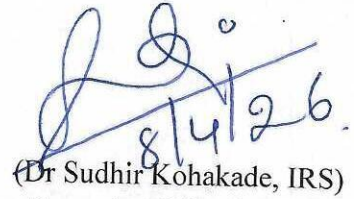 8/4/26.
(Dr Sudhir Kohakade, IRS)